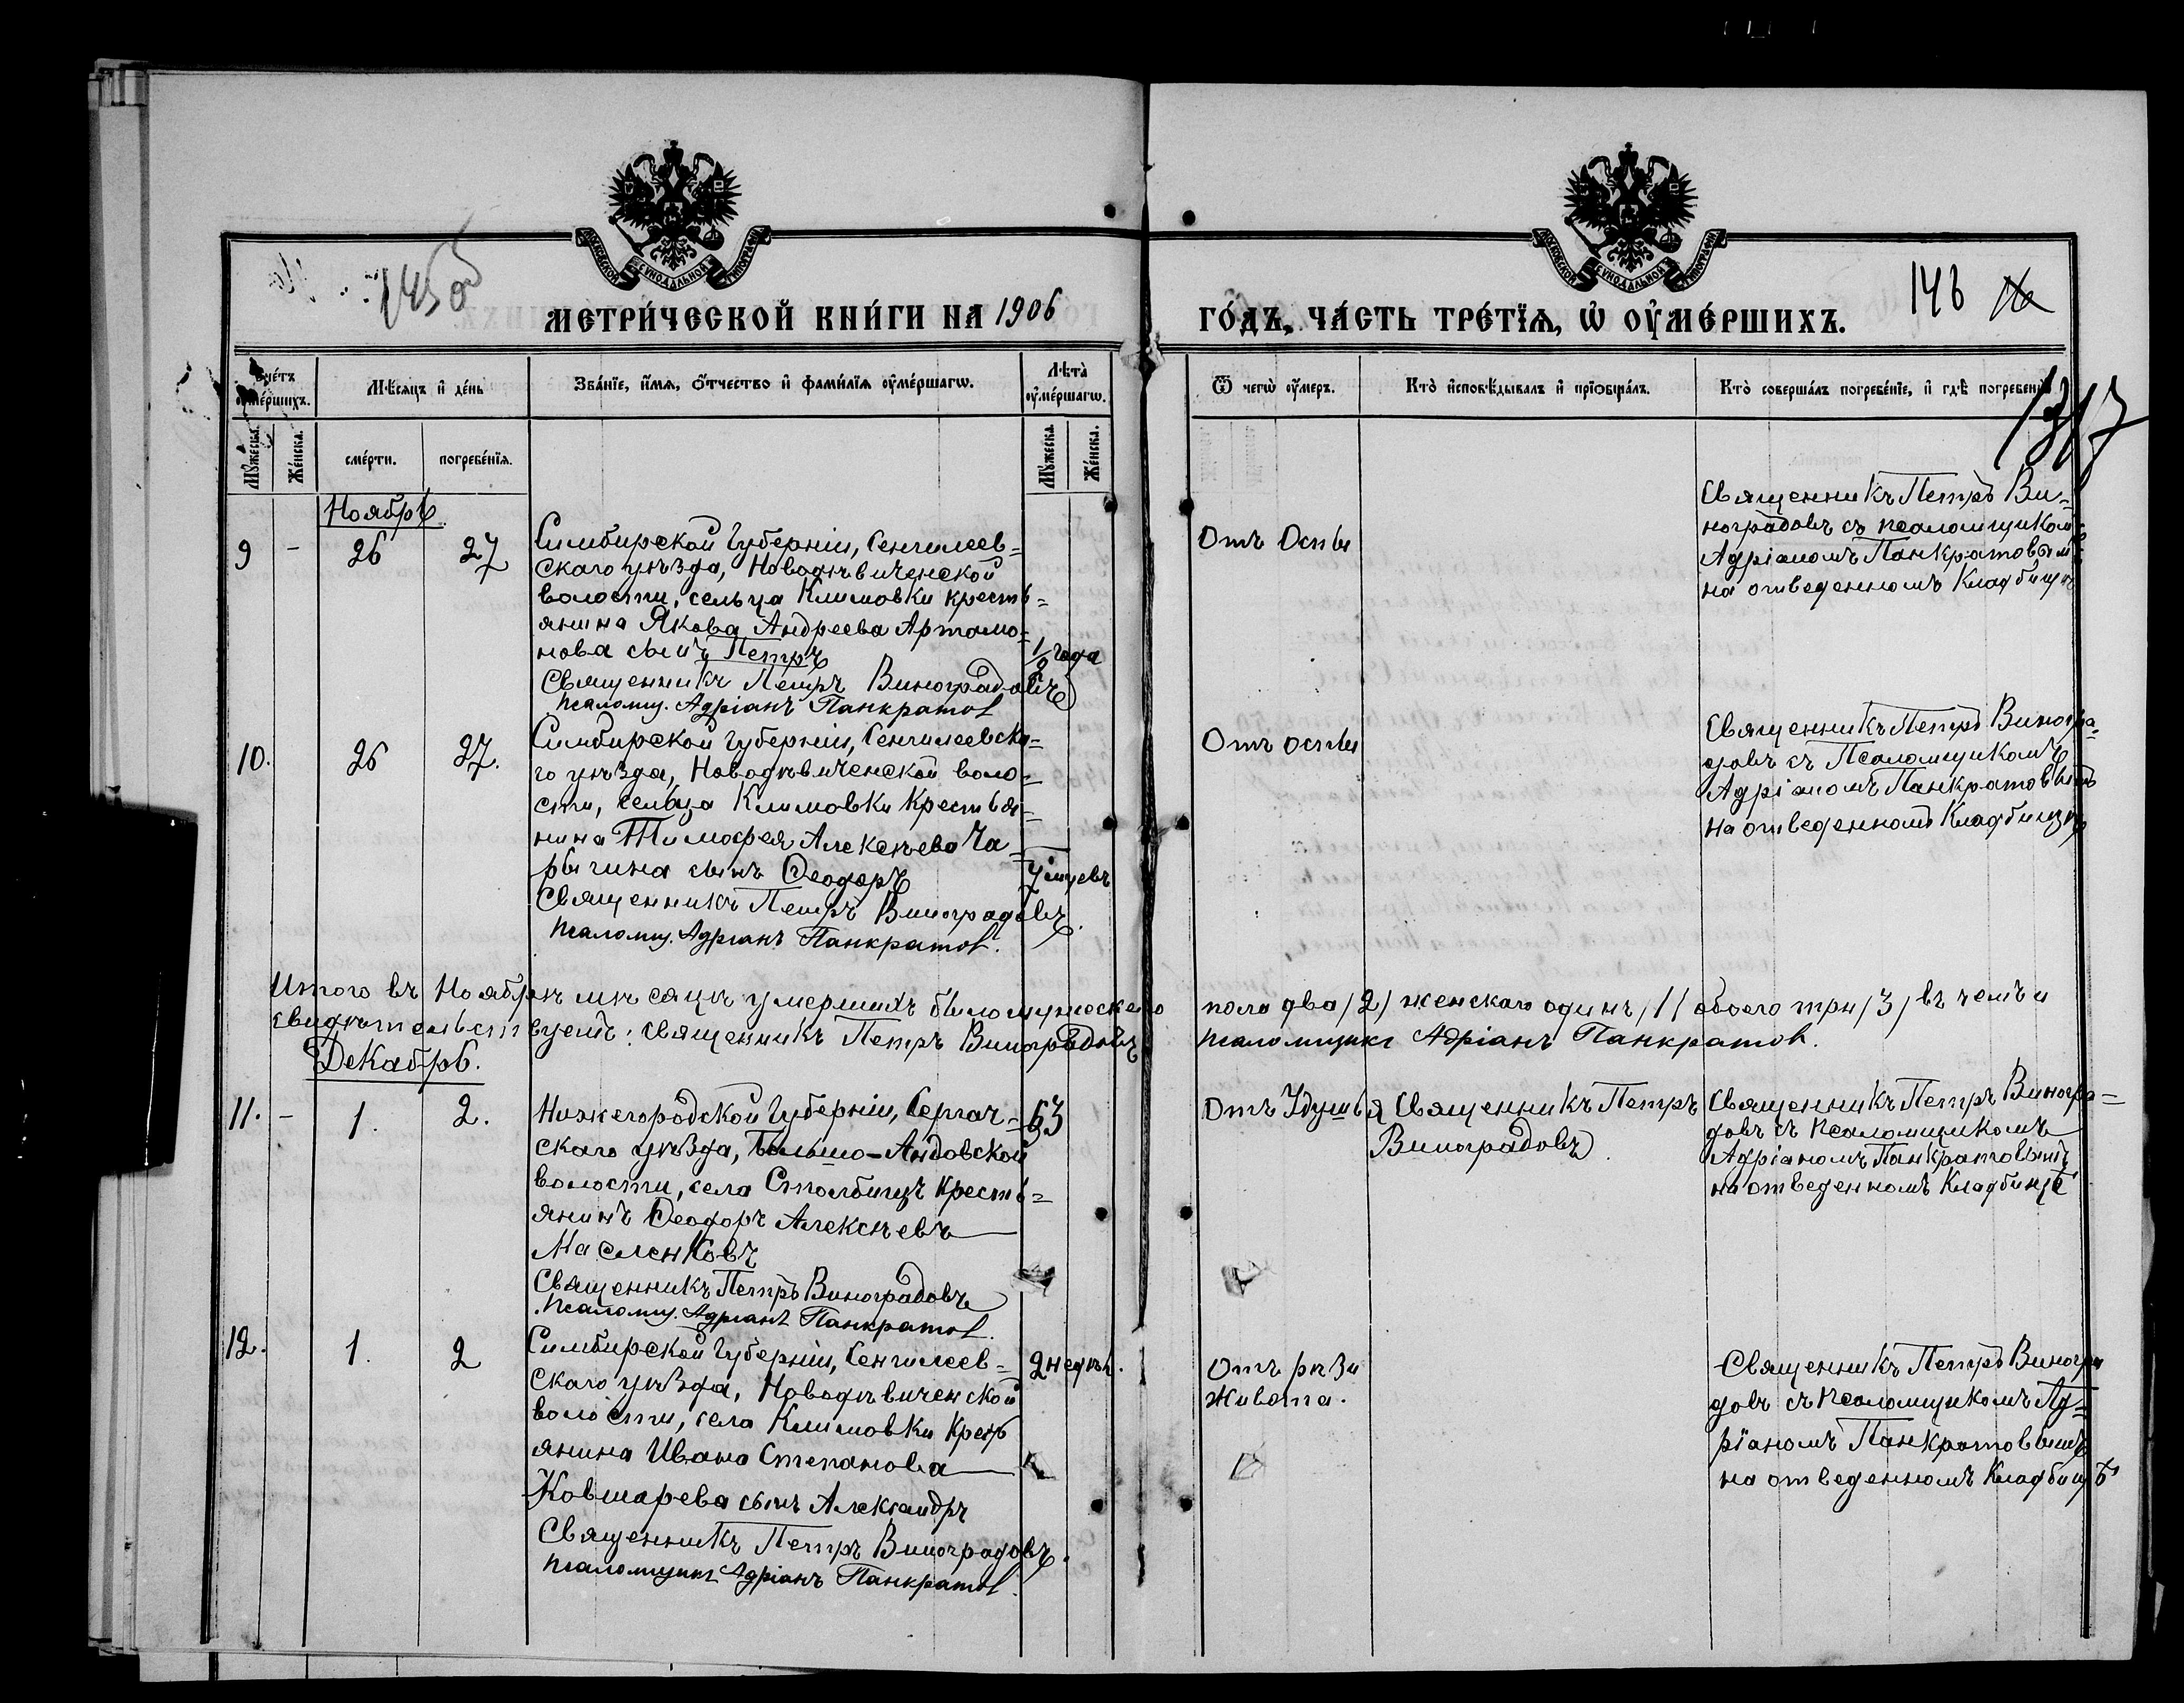 145 об
МОСКОВСКОЙ СѴНОДАЛЬНОЙ ТИПОГРАФІИ
МОСКОВСКОЙ СѴНОДАЛЬНОЙ ТИПОГРАФІИ
МЕТРИ́ЧЕСКОЙ КНИ́ГИ НА 1906
ГО́ДЪ, ЧА́СТЬ ТРЕ́ТЇѦ, Ѡ ОУ҆МЕ́РШИХЪ.
146
Сче́тъ оу҆ме́ршихъ.
Мѣ́сяцъ и҆ де́нь
Зва́нїе, и҆́мѧ, ѻ҆́тчество и҆ фами́лїѧ оу҆ме́ршагѡ.
Лѣ́та оу҆ме́ршагѡ.
Ѿ чегѡ̀ оу҆́меръ.
Кто̀ и҆сповѣ́дывалъ и҆ прїѡбща́лъ.
Кто̀ соверша́лъ погребе́нїе, и҆ гдѣ̀ погребены̀
Мꙋ́жеска.
Же́нска.
сме́рти.
погребе́нїѧ.
Мꙋ́жеска.
Же́нска.
Ноябрь
9 - 26 27
Симбирской Губерніи, Сенгилеев-
скаго уѣзда, Новодѣвиченской
волости, сельца Климовки кресть-
янина Якова Андреева Артамо-
нова сынъ Петръ
1/2 года
Священникъ Петръ Виноградовъ
Псаломщ. Адріанъ Панкратов
Отъ Оспы
Священникъ Петръ Ви-
ноградовъ съ псаломщиком
Адріаномъ Панкратовым
на отведенномъ Кладбищѣ
10. 26 27.
Симбирской Губерніи, Сенгилеевска-
го уѣзда, Новодѣвиченской воло-
сти, сельца Климовки Крестья-
нина Тимофея Алексѣева Ча-
рыгина сынъ Ѳеодоръ
Священникъ Петръ Виноградовъ.
Псаломщ. Адріанъ Панкратов.
Отъ оспы
Священникъ Петръ Виногра-
довъ съ Псаломщикомъ
Адріаномъ Панкратовымъ
на отведенномъ Кладбищѣ
Итого въ Ноябрѣ мѣсяцѣ умершихъ было мужескаго пола два /2/ женскаго одинъ /1/ обоего три /3/ въ чемъ и
свидѣтельствуетъ: священникъ Петръ Виноградовъ псаломщикъ Адріанъ Панкратов.
Декабрь.
11. - 1. 2.
Нижегородской Губерніи, Сергач-
скаго уѣзда, Больше-Андовской
волости, села Столбищъ кресть-
янинъ Ѳеодоръ Алексѣевъ
Масленковъ
63
Священникъ Петръ Виноградовъ
Псаломщ. Адріанъ Панкратов.
Отъ Удушья
Священникъ Петръ
Виноградовъ
Священникъ Петръ Виногра-
довъ съ Псаломщикомъ
Адріаномъ Панкратовымъ
на отведенномъ Кладбищѣ
12. 1. 2
Симбирской Губерніи, Сенгилеев-
скаго уѣзда, Новодѣвиченской
волости, села Климовки Крест
янина Ивана Степанова
Ковшарева сынъ Александръ
2 недѣл.
Священникъ Петръ Виноградовъ.
Псаломщикъ Адріанъ Панкратов.
Отъ рѣзи
живота.
Священникъ Петръ Виногра
довъ съ Псаломщикомъ Ад-
ріаномъ Панкратовымъ
на отведенномъ Кладбищѣ